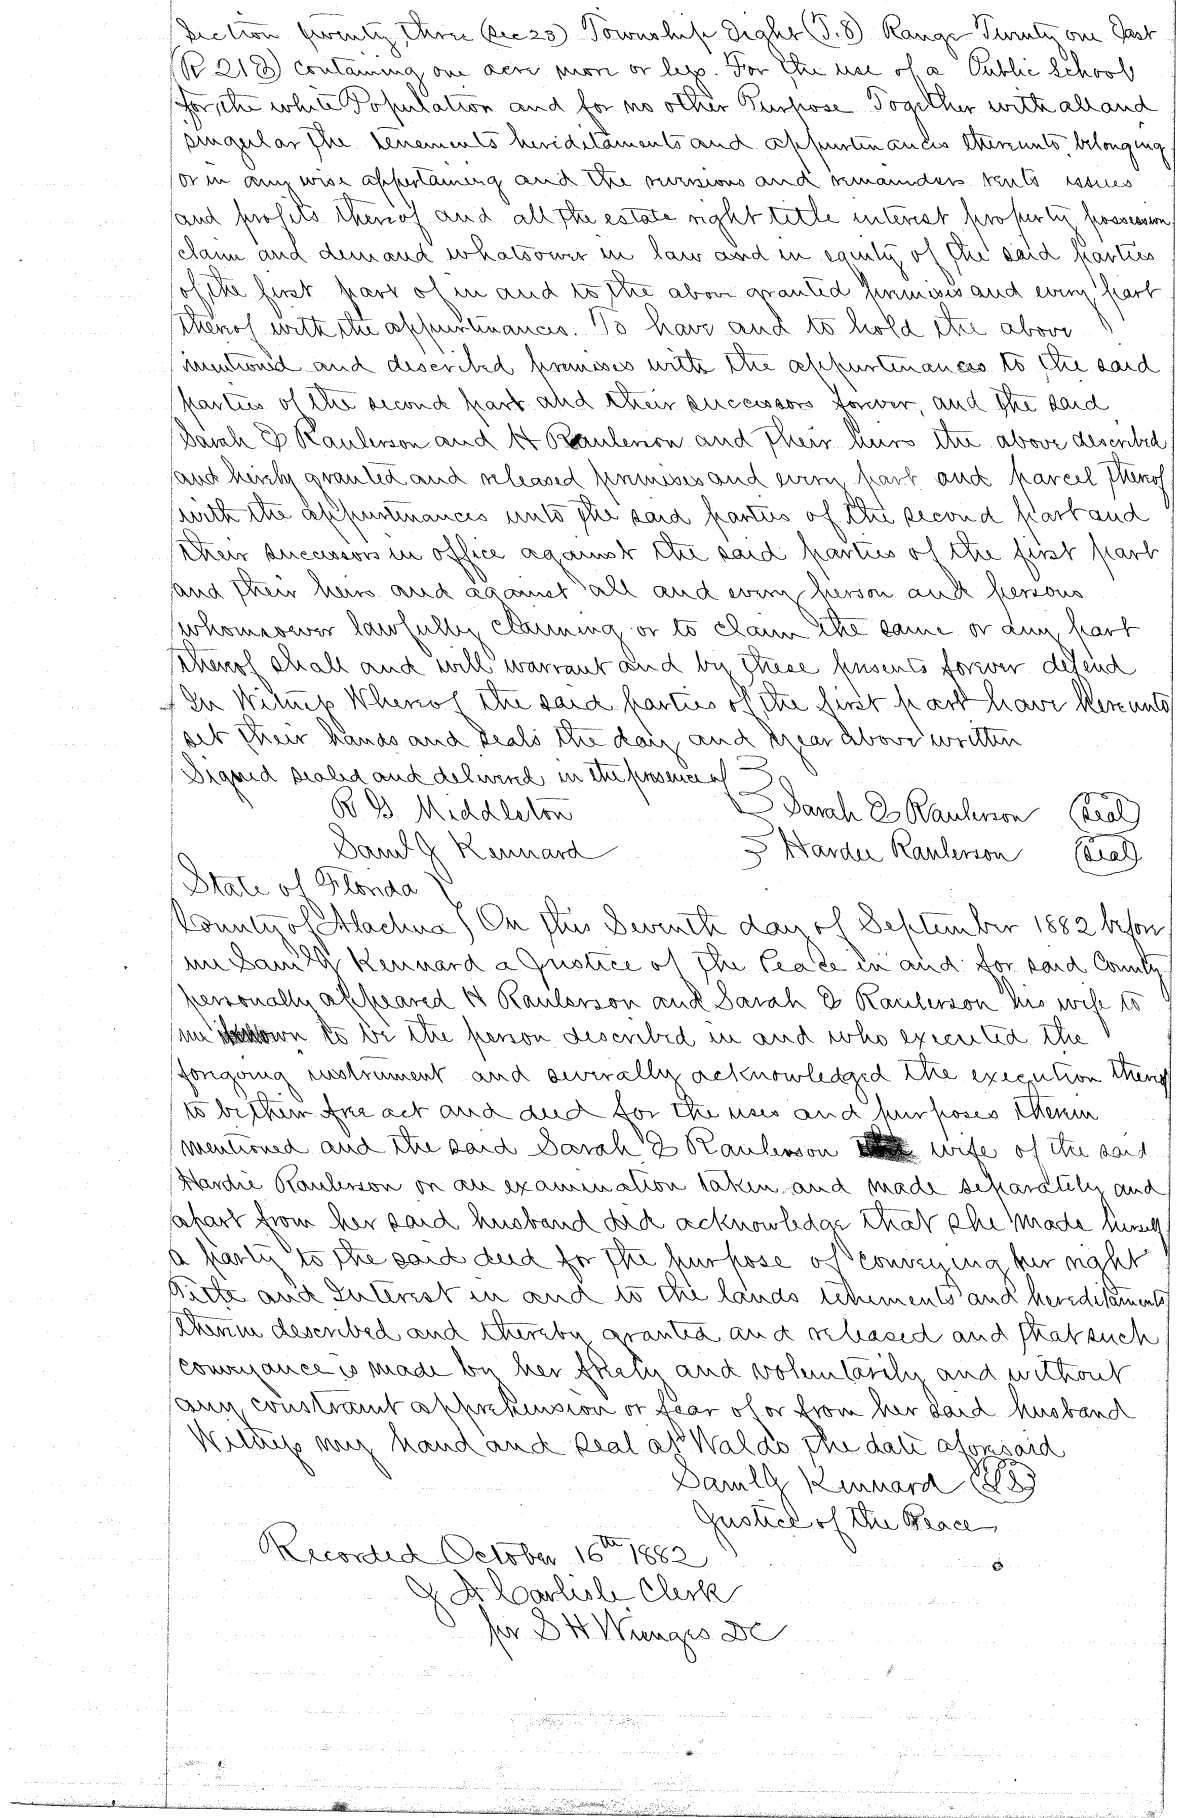 Section twenty three (Sec 23) Township Eight (T.8) Range Twenty one East
(R 21 E) containing one acre more or less. For the use of a Public School
for the white Population and for no other Purpose Together with all and
singular the tenements hereditaments and appurtinances thereunto belonging
or in any wise appertaining and the reversions and remainders rents issues
and profits thereof and all the estate right title interest property possession
claim and demand whatsoever in law and in equity of the said parties
of the first part of in and to the above granted premises and every part
thereof with the appurtinances. To have and to hold the above
mentioned and described premises with the appurtenances to the said
parties of the second part and their successors forever, and the said
Sarah E Raulerson and H Raulerson and their heirs the above described
and hereby granted and released premises and every part and parcel thereof
with the appurtinances unto the said parties of the second part and
their successors in office against the said parties of the first part
and their heirs and against all and every person and persons
whomsoever lawfully claiming or to claim the same or any part
thereof shall and will warrant and by these presents forever defend
In Witness Whereof the said parties of the first part have hereunto
set their hands and seals the day and year above written
Signed sealed and delivered in the presence of
R G Middleton Sarah E Raulerson (Seal)
Saml J Kennard Hardee Raulerson (Seal)
State of Florida
County of Alachua) On this Seventh day of September 1882 before
me Saml J Kennard a Justice of the Peace in and for said County
personally appeared H Raulerson and Sarah E Raulerson his wife to
me known to be the person described in and who executed the
forgoing instrument and severally acknowledged the execution thereof
to be their free act and deed for the uses and purposes therein
mentioned and the said Sarah E Raulerson wife of the said
Hardie Raulerson on an examination taken and made separately and
apart from her said husband did acknowledge that she made herself
a party to the said deed for the purpose of conveying her right
Title and Interest in and to the lands tenements and hereditaments
therein described and thereby granted and released and that such
conveyance is made by her freely and voluntarily and without
any constraint apprehension or fear of or from her said husband
Witness my hand and seal at Waldo the date aforesaid
Saml J Kennard (LS)
Justice of the Peace
Recorded October 16th 1882
J A Carlisle Clerk
per S H Wienges DC